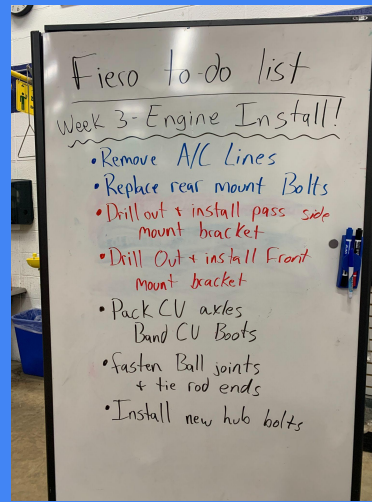 Fiero to-do list
Week 3 - Engine Install!
• Remove A/C Lines
• Replace rear mount Bolts
• Drill out + install pass side
mount bracket
• Drill Out + install Front
mount bracket
• Pack CV axles
Band CV Boots
• fasten Ball joints
+ tie rod ends
• Install new hub bolts